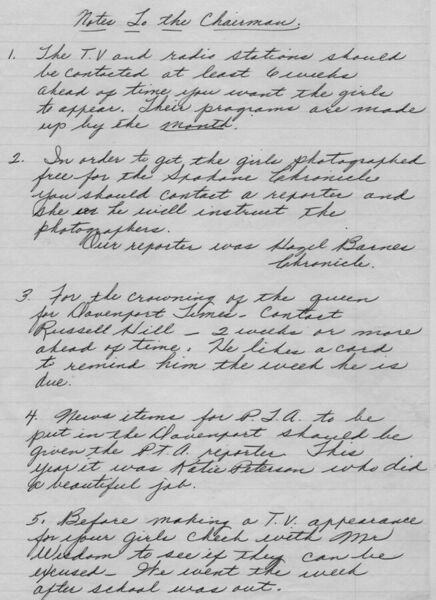 Notes To the Chairman.
1. The T.V and radio stations should
be contacted at least 6 weeks
ahead of time you want the girls
to appear. Their programs are made
up by the month.
2. In order to get the girls photographed
free for the Spokane Chronicle
you should contact a reporter and
she or he will instruct the
photographers.
Our reporter was Hazel Barnes
Chronicle.
3. For the crowning of the queen
for Davenport Times - Contact
Russell Hill - 2 weeks or more
ahead of time. He likes a card
to remind him the week he is
due.
4. News items for P.T.A. to be
put in the Davenport should be
given the P.T.A. reporter. This
year it was Katie Peterson who did
a beautiful job.
5. Before making a T.V. appearance
for your girls check with Mr
Wisdom to see if they can be
excused - We went the week
after school was out.